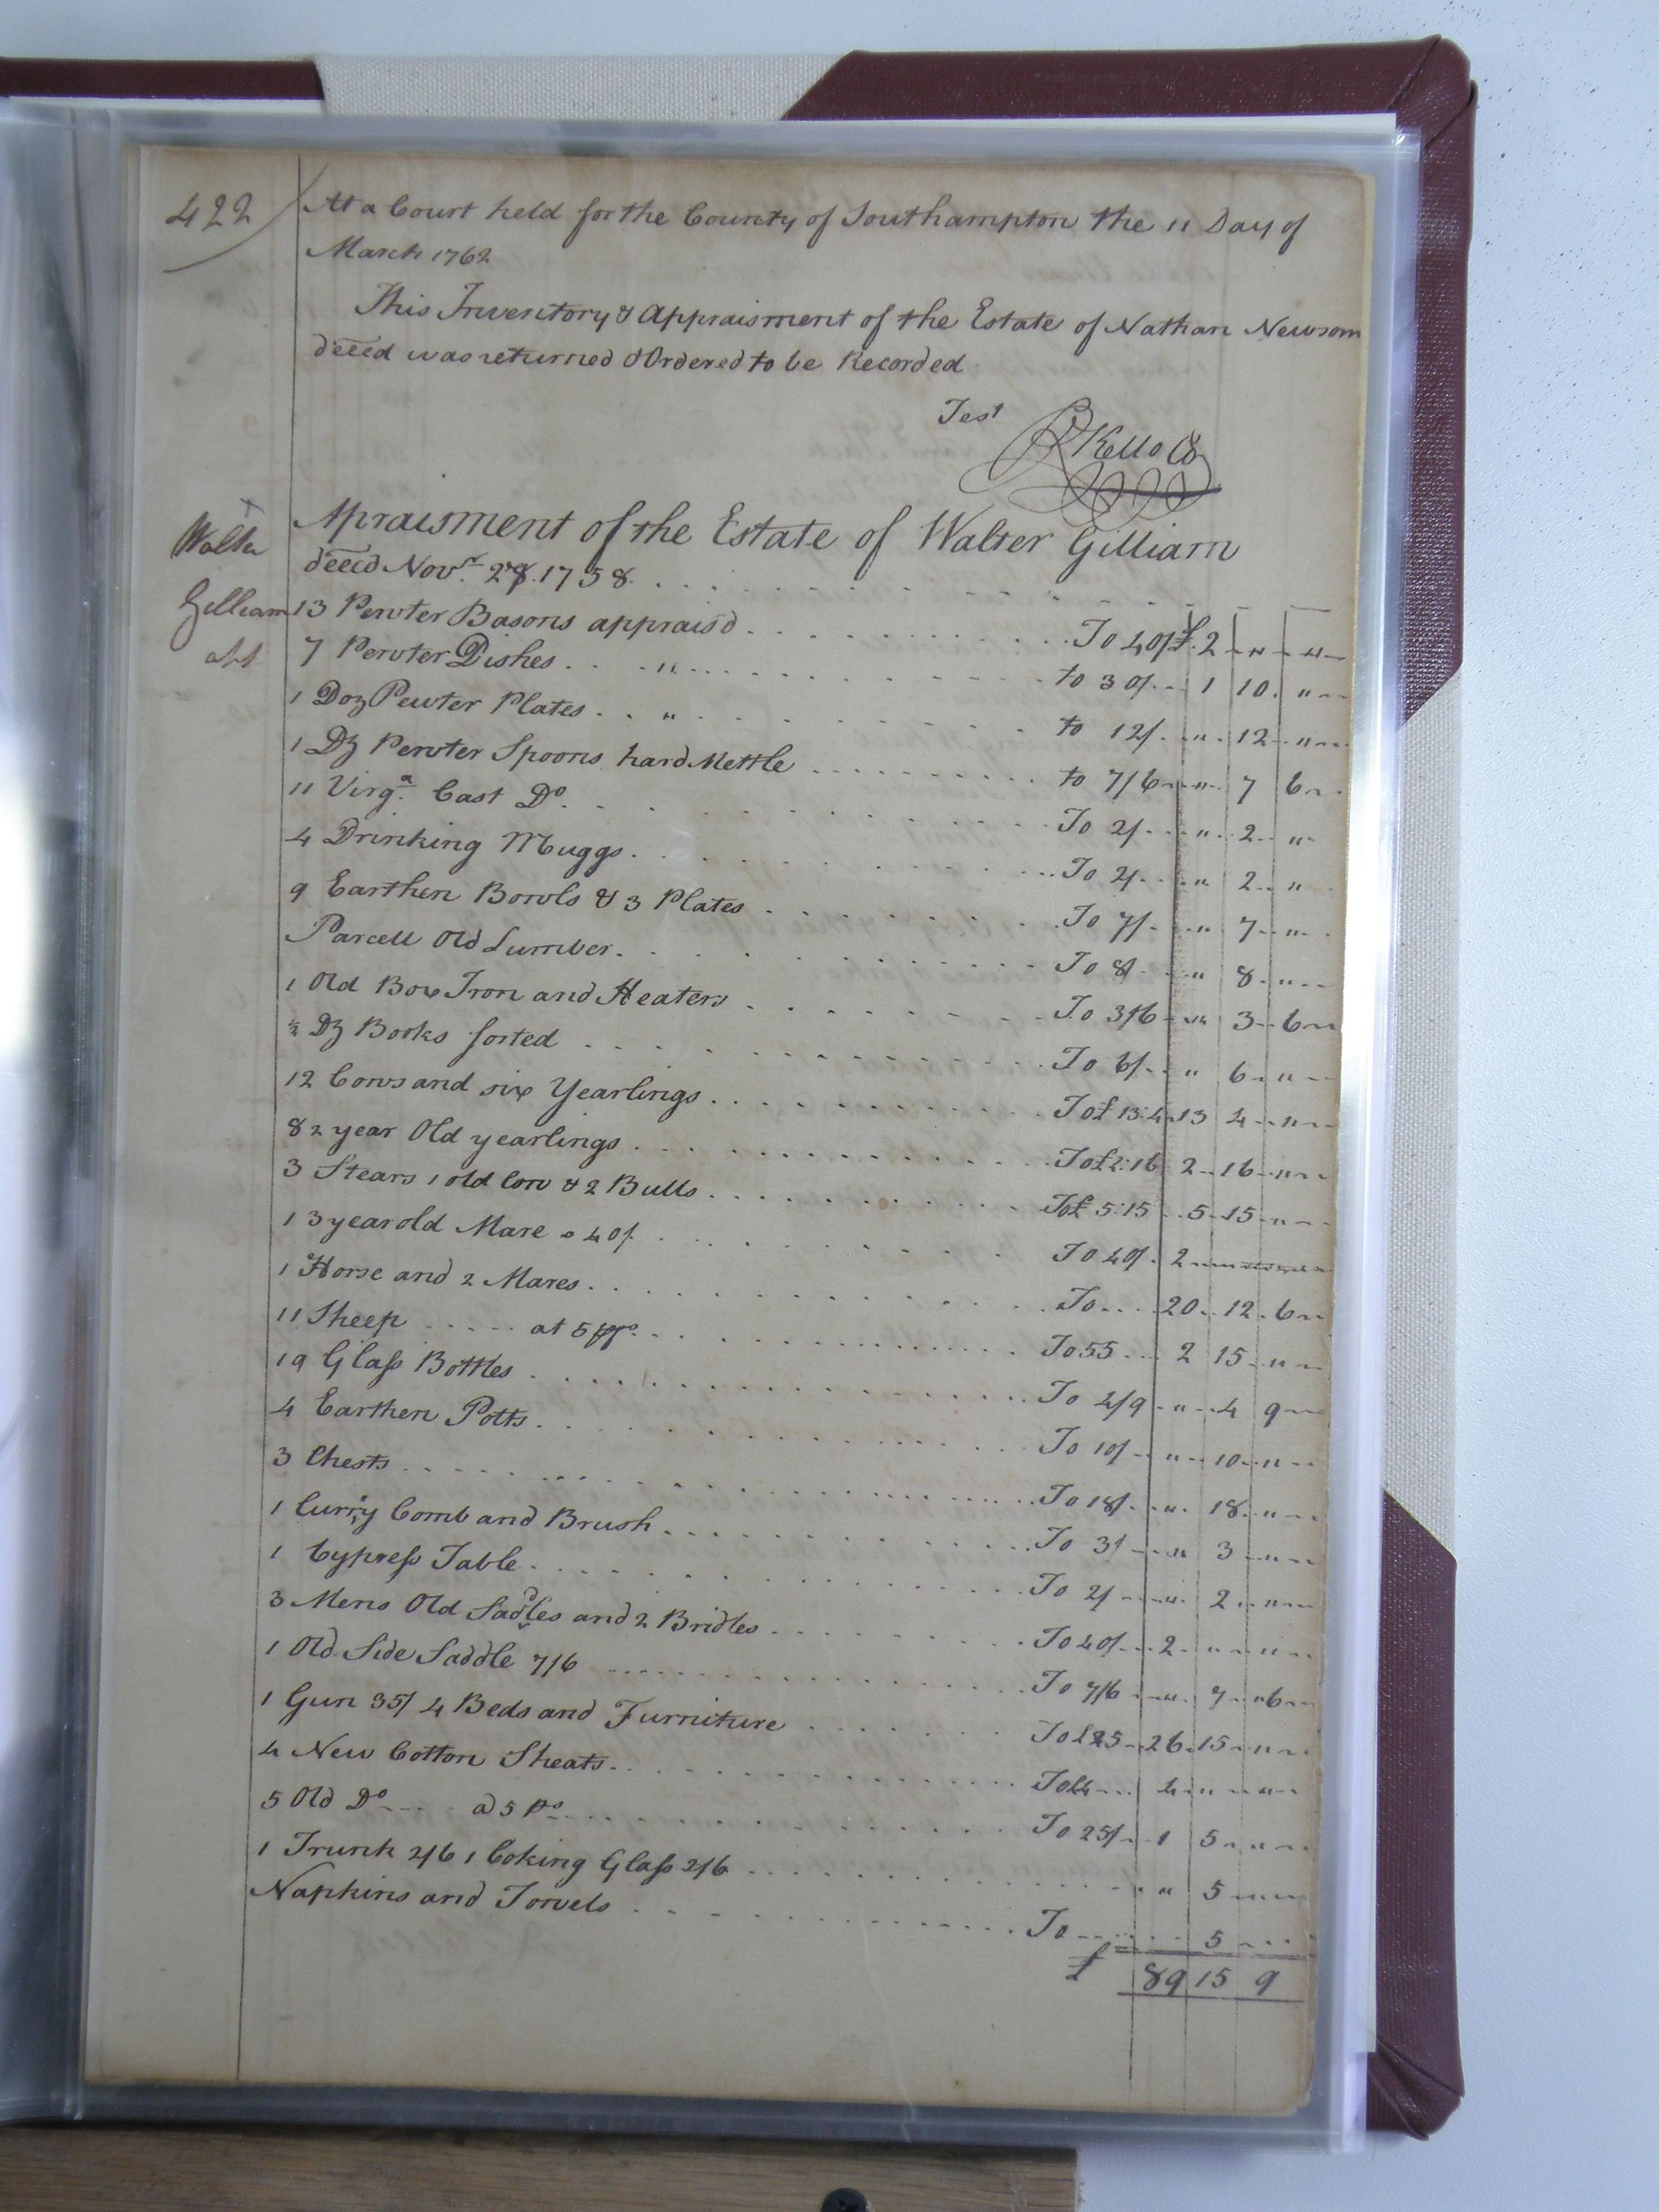 422
At a Court held for the County of Southampton the 11 Day of
March 1762
This Inventory & Appraisment of the Estate of Nathan Newsom
deced was returned & Ordered to be Recorded
Test
R Kello CC
Walter
Gilliam
Apraisment of the Estate of Walter Gilliam
deced Novr. 28. 1758
13 Pewter Basons apprais'd To 40/ £ 2 " "
7 Pewter Dishes " to 30/ 1 10 "
1 Doz Pewter Plates " to 12/ " 12 "
1 Dz Pewter Spoons hard Mettle to 7/6 " 7 6
11 Virga. Cast Do. To 2/ " 2 "
4 Drinking Muggs To 2/ " 2 "
9 Earthen Bowls & 3 Plates To 7/ " 7 "
Parcell Old Lumber To 8/ " 8 "
1 Old Box Iron and Heaters To 3/6 " 3 6
½ Dz Books sorted To 6/ " 6 "
12 Cows and six Yearlings To £ 13:4 13 4 "
8 2 year Old yearlings To £2:16 2 16 "
3 Stears 1 old Cow & 2 Bulls To £ 5:15 5 15 "
1 3 year old Mare a 40/ To 40/ 2
1 Horse and 2 Mares To 20 12 6
11 Sheep at 5/ To 55 2 15 "
19 Glass Bottles To 4/9 " 4 9
4 Earthen Potts To 10/ " 10 "
3 Chests To 18/ " 18 "
1 Curry Comb and Brush To 3/ " 3 "
1 Cypress Table To 2/ " 2 "
3 Mens Old Saddles and 2 Bridles To 40/ 2 " "
1 Old Side Saddle 7/6 To 7/6 " 7 "6
1 Gun 35/ 4 Beds and Furniture To £25 26 15 "
4 New Cotton Sheats To £4 4 " "
5 Old Do a 5 To 25/ 1 5 "
1 Trunk 2/6 1 Looking Glass 2/6 " 5
Napkins and Towels To 5
£ 89 15 9